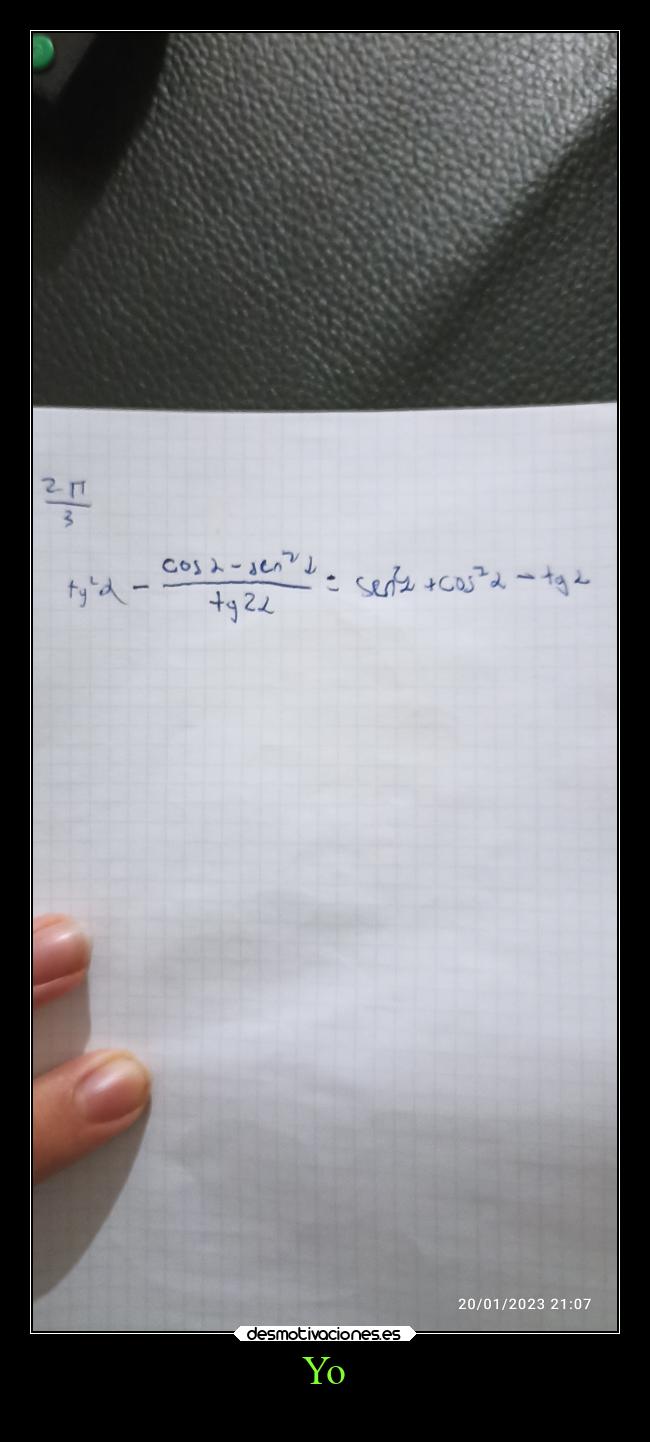 2π
3
tg²α - cos α - sen² α / tg 2α = sen²α + cos²α - tg α
20/01/2023 21:07
desmotivaciones.es
Yo